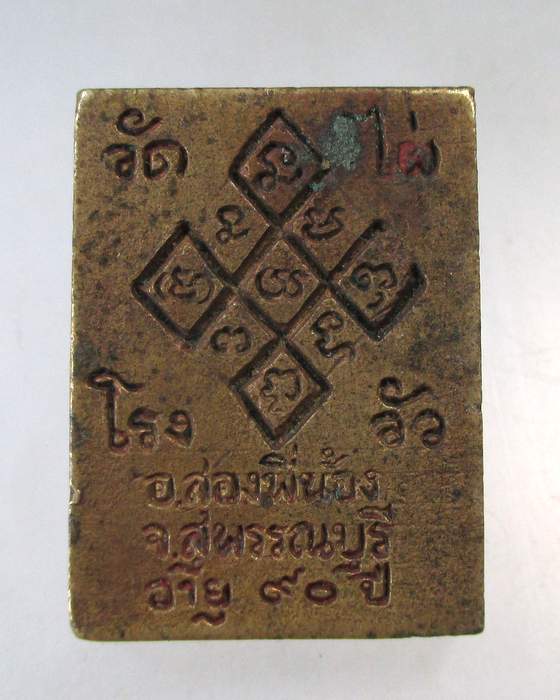 วัด ไผ่
โรง วัว
อ.สองพี่น้อง
จ.สุพรรณบุรี
อายุ ๙๐ ปี